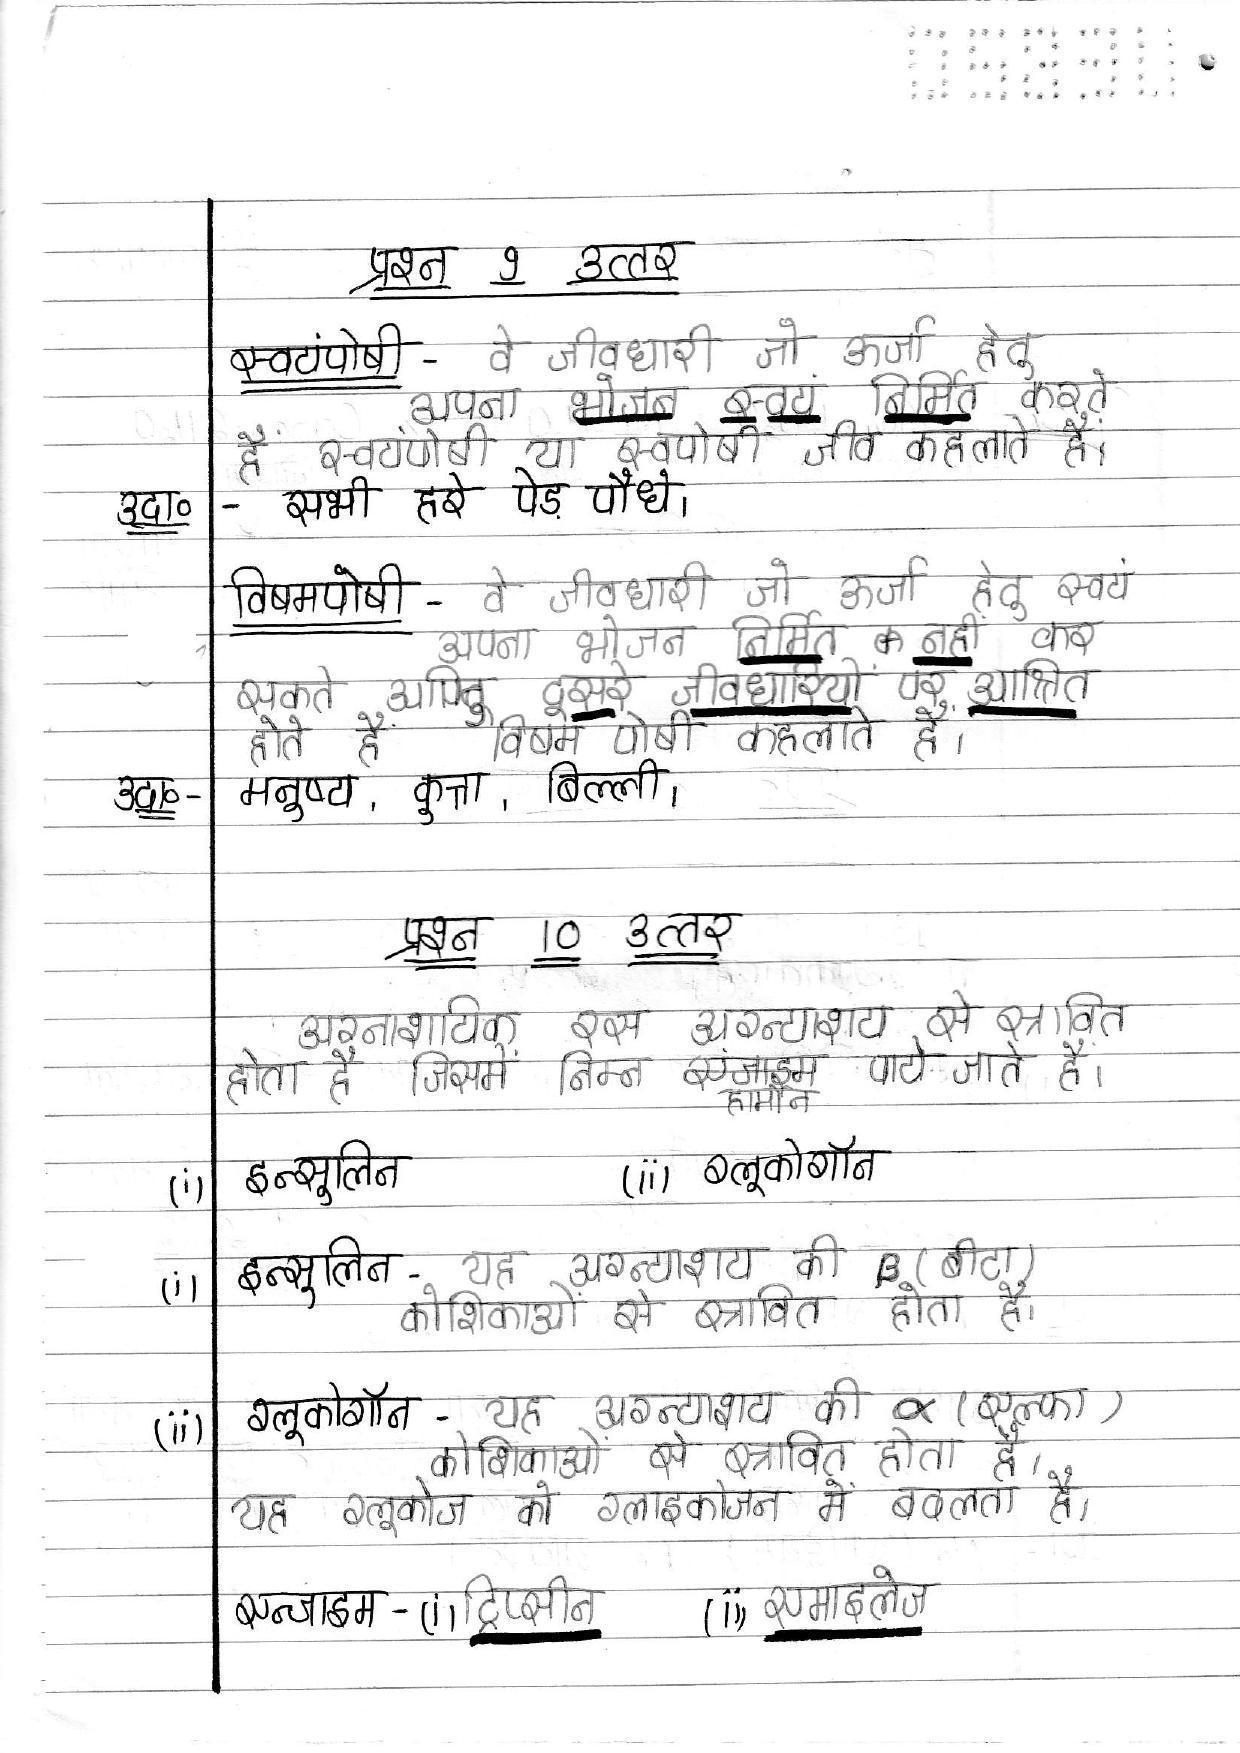 प्रश्न 9 उत्तर
स्वयंपोषी - वे जीवधारी जो ऊर्जा हेतु
अपना भोजन स्वयं निर्मित करते
हैं स्वयंपोषी या स्वपोषी जीव कहलाते हैं।
उदा० - सभी हरे पेड़ पौधे।
विषमपोषी - वे जीवधारी जो ऊर्जा हेतु स्वयं
अपना भोजन निर्मित क नहीं कर
सकते अपितु दूसरे जीवधारियों पर आश्रित
होते हैं विषम पोषी कहलाते हैं।
उदा०- मनुष्य, कुत्ता, बिल्ली।
प्रश्न 10 उत्तर
अग्नाशायिक रस अग्न्याशय से स्त्रावित
होता है जिसमें निम्न एंजाइम पाये जाते हैं।
हार्मोन
(i) इन्सुलिन (ii) ग्लूकोगॉन
(i) इन्सुलिन - यह अग्न्याशय की β (बीटा)
कोशिकाओं से स्त्रावित होता है।
(ii) ग्लूकोगॉन - यह अग्न्याशय की α (एल्फा)
कोशिकाओं से स्त्रावित होता है,
यह ग्लूकोज को ग्लाइकोजन में बदलता है।
एन्जाइम - (i) ट्रिप्सीन (ii) एमाइलेज